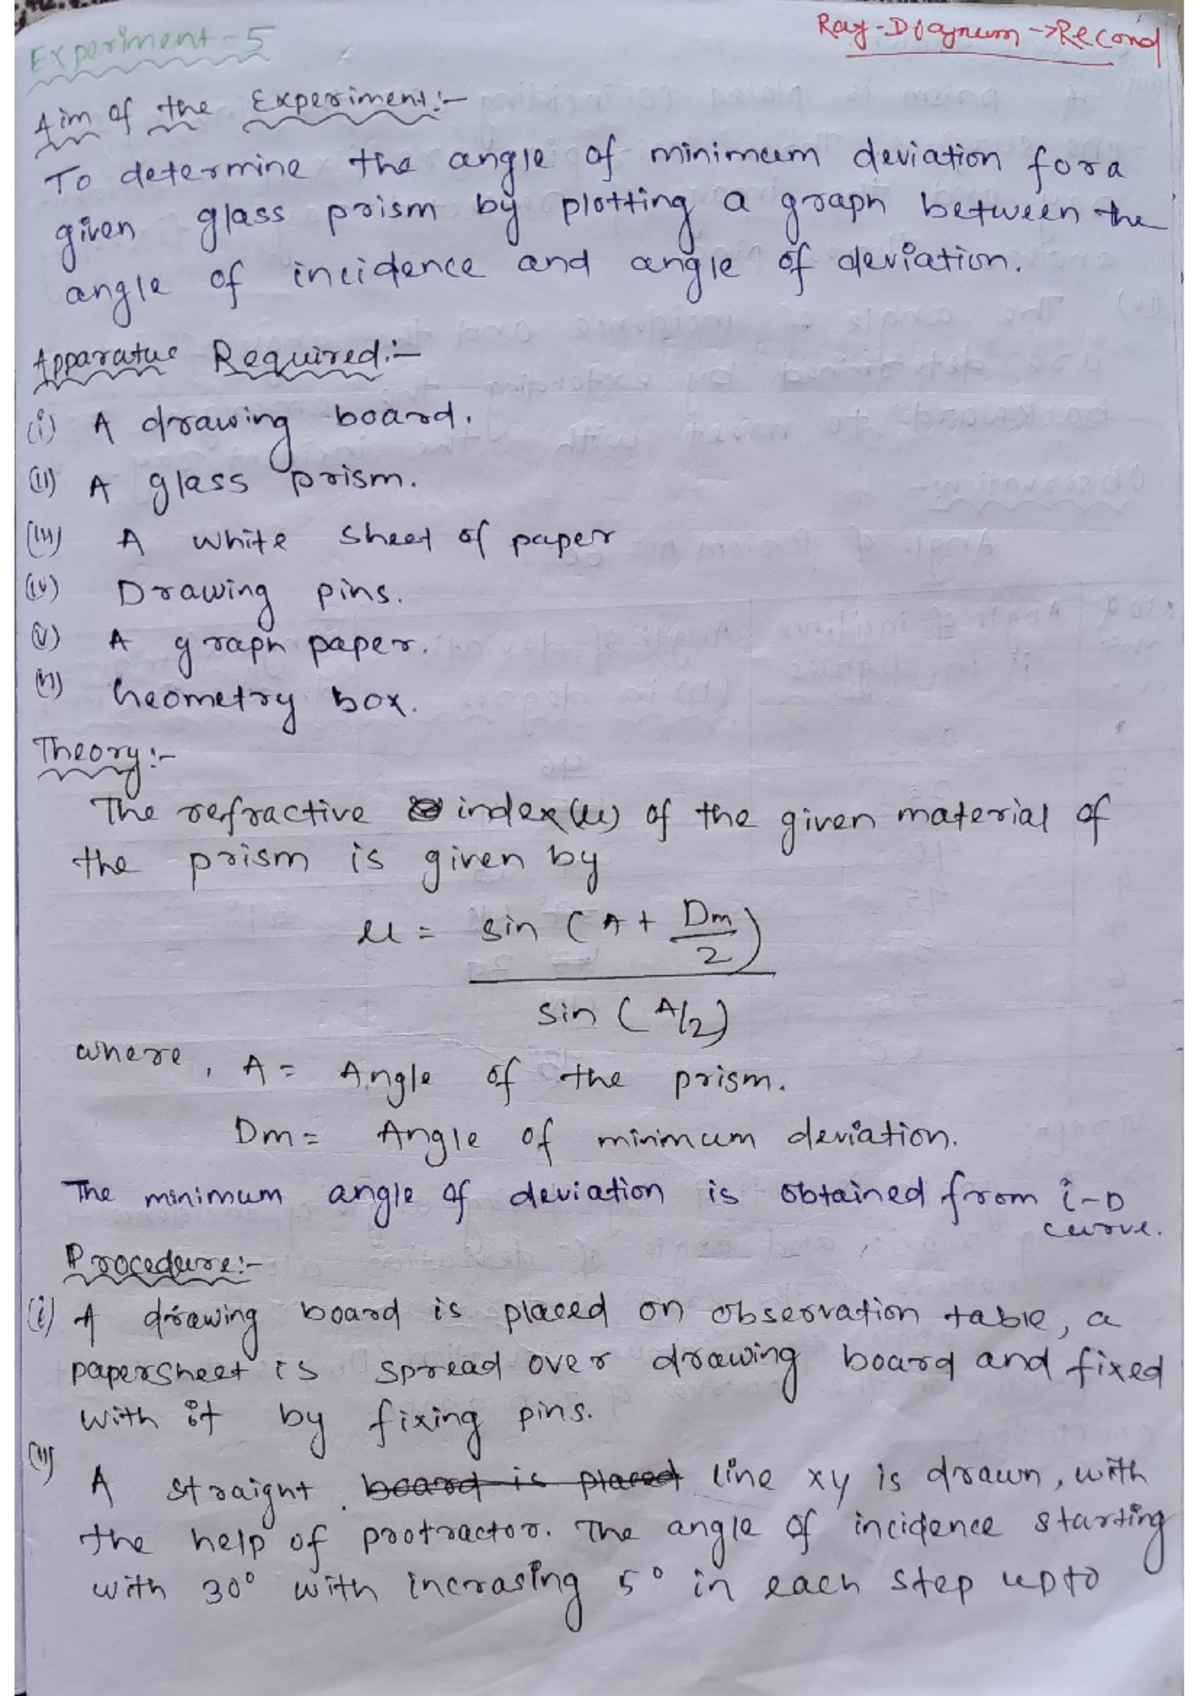 Experiment-5
Ray-Diagram → Record
Aim of the Experiment:-
To determine the angle of minimum deviation for a
given glass prism by plotting a graph between the
angle of incidence and angle of deviation.
Apparatus Required:-
(i) A drawing board.
(ii) A glass prism.
(iii) A white sheet of paper
(iv) Drawing pins.
(v) A graph paper.
(vi) Geometry box.
Theory:-
The refractive index (μ) of the given material of
the prism is given by
μ = sin (A + Dm/2)
sin (A/2)
where, A = Angle of the prism.
Dm = Angle of minimum deviation.
The minimum angle of deviation is obtained from i-D
curve.
Procedure:-
(i) A drawing board is placed on observation table, a
papersheet is spread over drawing board and fixed
with it by fixing pins.
(ii)
A straight board is placed line xy is drawn, with
the help of protractor. The angle of incidence starting
with 30° with incrasing 5° in each step upto